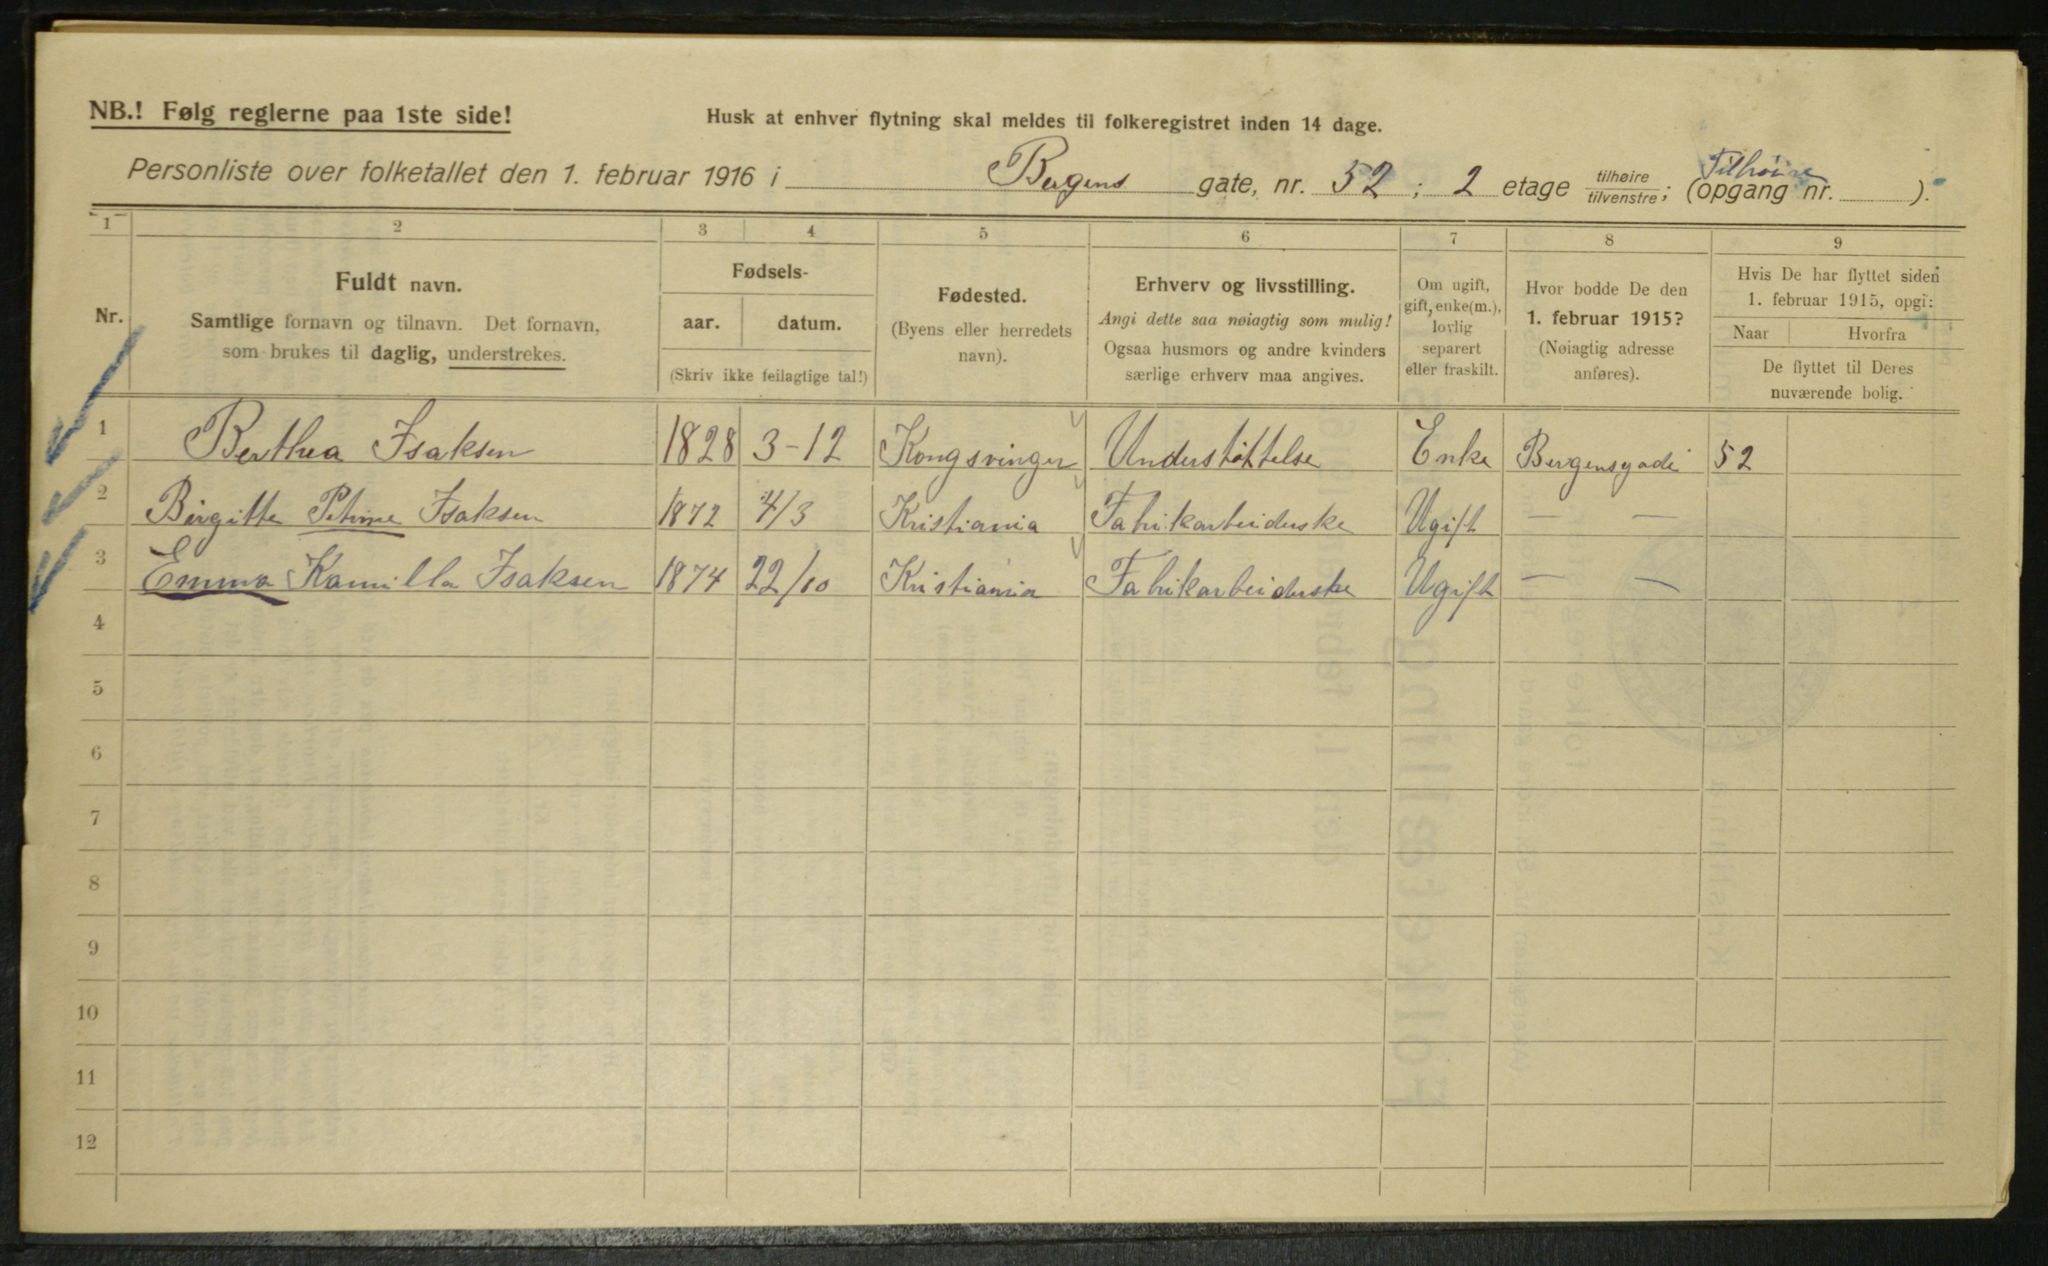 NB.! Følg reglerne paa 1ste side!
Husk at enhver flytning skal meldes til folkeregistret inden 14 dage.
Personliste over folketallet den 1. februar 1916 i Bergens gate, nr. 52 ; 2 etage tilhøire/tilvenstre; (opgang nr. ).
Tilhøire
1 2 3 4 5 6 7 8 9
Nr.
Fuldt navn.
Samtlige fornavn og tilnavn. Det fornavn,
som brukes til daglig, understrekes.
Fødsels-
aar. datum.
(Skriv ikke feilagtige tal!)
Fødested.
(Byens eller herredets
navn).
Erhverv og livsstilling.
Angi dette saa nøiagtig som mulig!
Ogsaa husmors og andre kvinders
særlige erhverv maa angives.
Om ugift,
gift, enke(m.),
lovlig
separert
eller fraskilt.
Hvor bodde De den
1. februar 1915?
(Nøiagtig adresse
anføres).
Hvis De har flyttet siden
1. februar 1915, opgi:
Naar Hvorfra
De flyttet til Deres
nuværende bolig.
1 Berthea Isaksen 1828 3-12 Kongsvinger Understøttelse Enke Bergensgade 52
2 Birgitte Petrine Isaksen 1872 4/3 Kristiania Fabrikarbeiderske Ugift — —
3 Emma Kamilla Isaksen 1874 22/10 Kristiania Fabrikarbeiderske Ugift — —
4
5
6
7
8
9
10
11
12